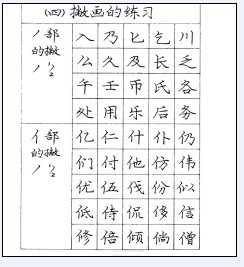 (四)撇画的练习
丿部
的撇
丿 1/2
入 乃 匕 乞 川
么 久 及 长 乏
午 壬 币 氏 各
处 用 乐 后 务
亻部
的撇
丿 1/2
亿 仁 什 仆 仍
们 付 他 仿 伟
优 伍 伐 份 似
低 侍 侃 侈 信
修 倍 倾 倘 僧